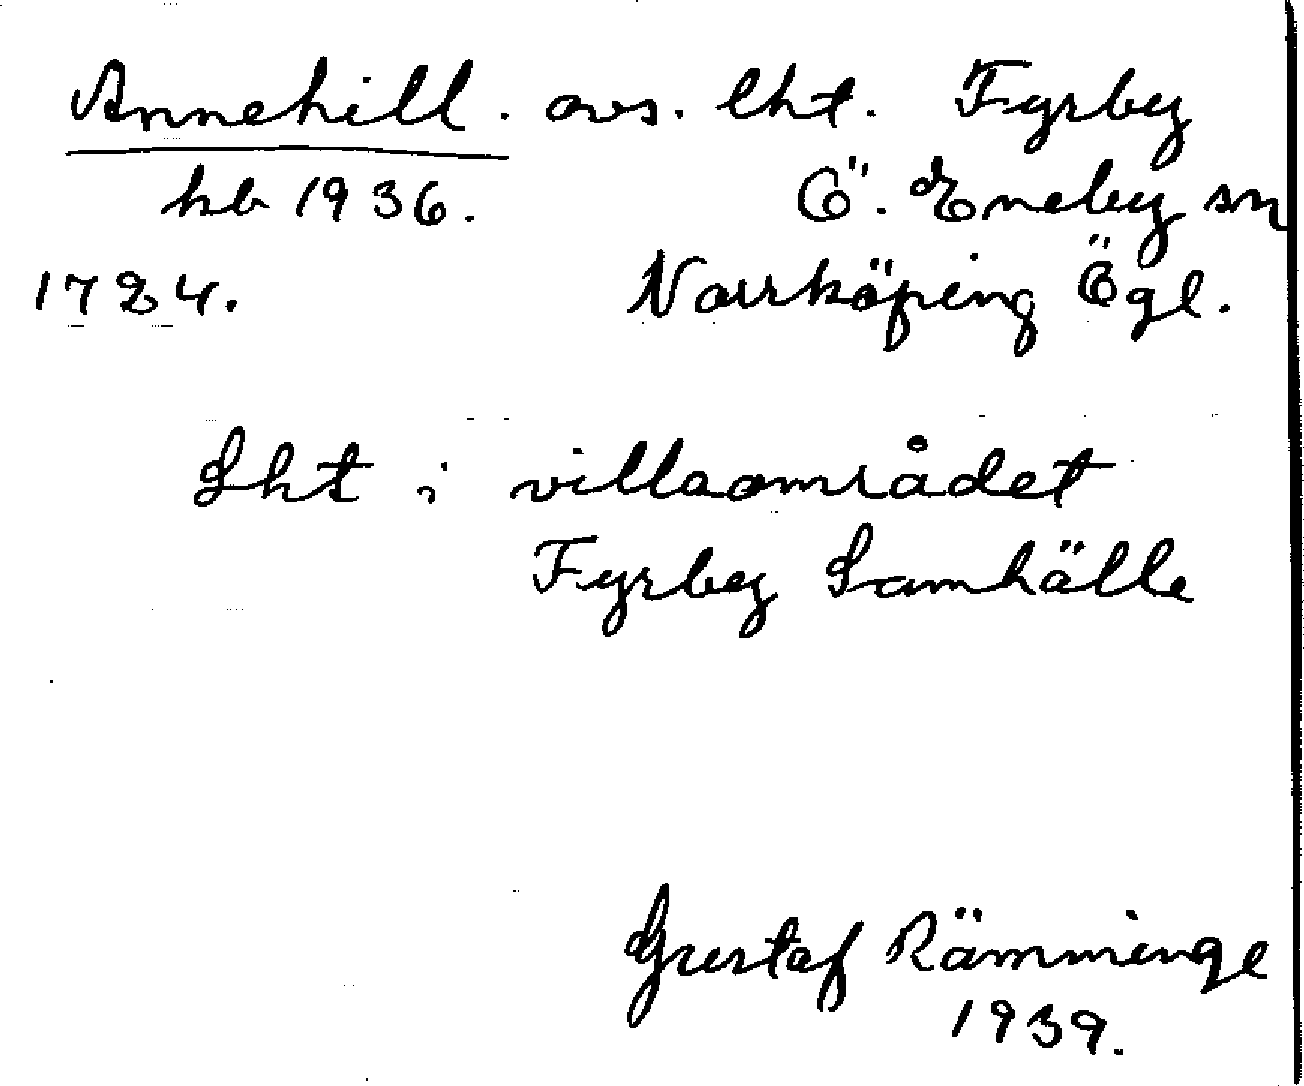 Annehill. avs. lht. Fyrby
hb 1936. Ö. Eneby sn
1724. Norrköping Ögl.
Lht i villaområdet
Fyrby Samhälle
Gustaf Rämminge
1939.